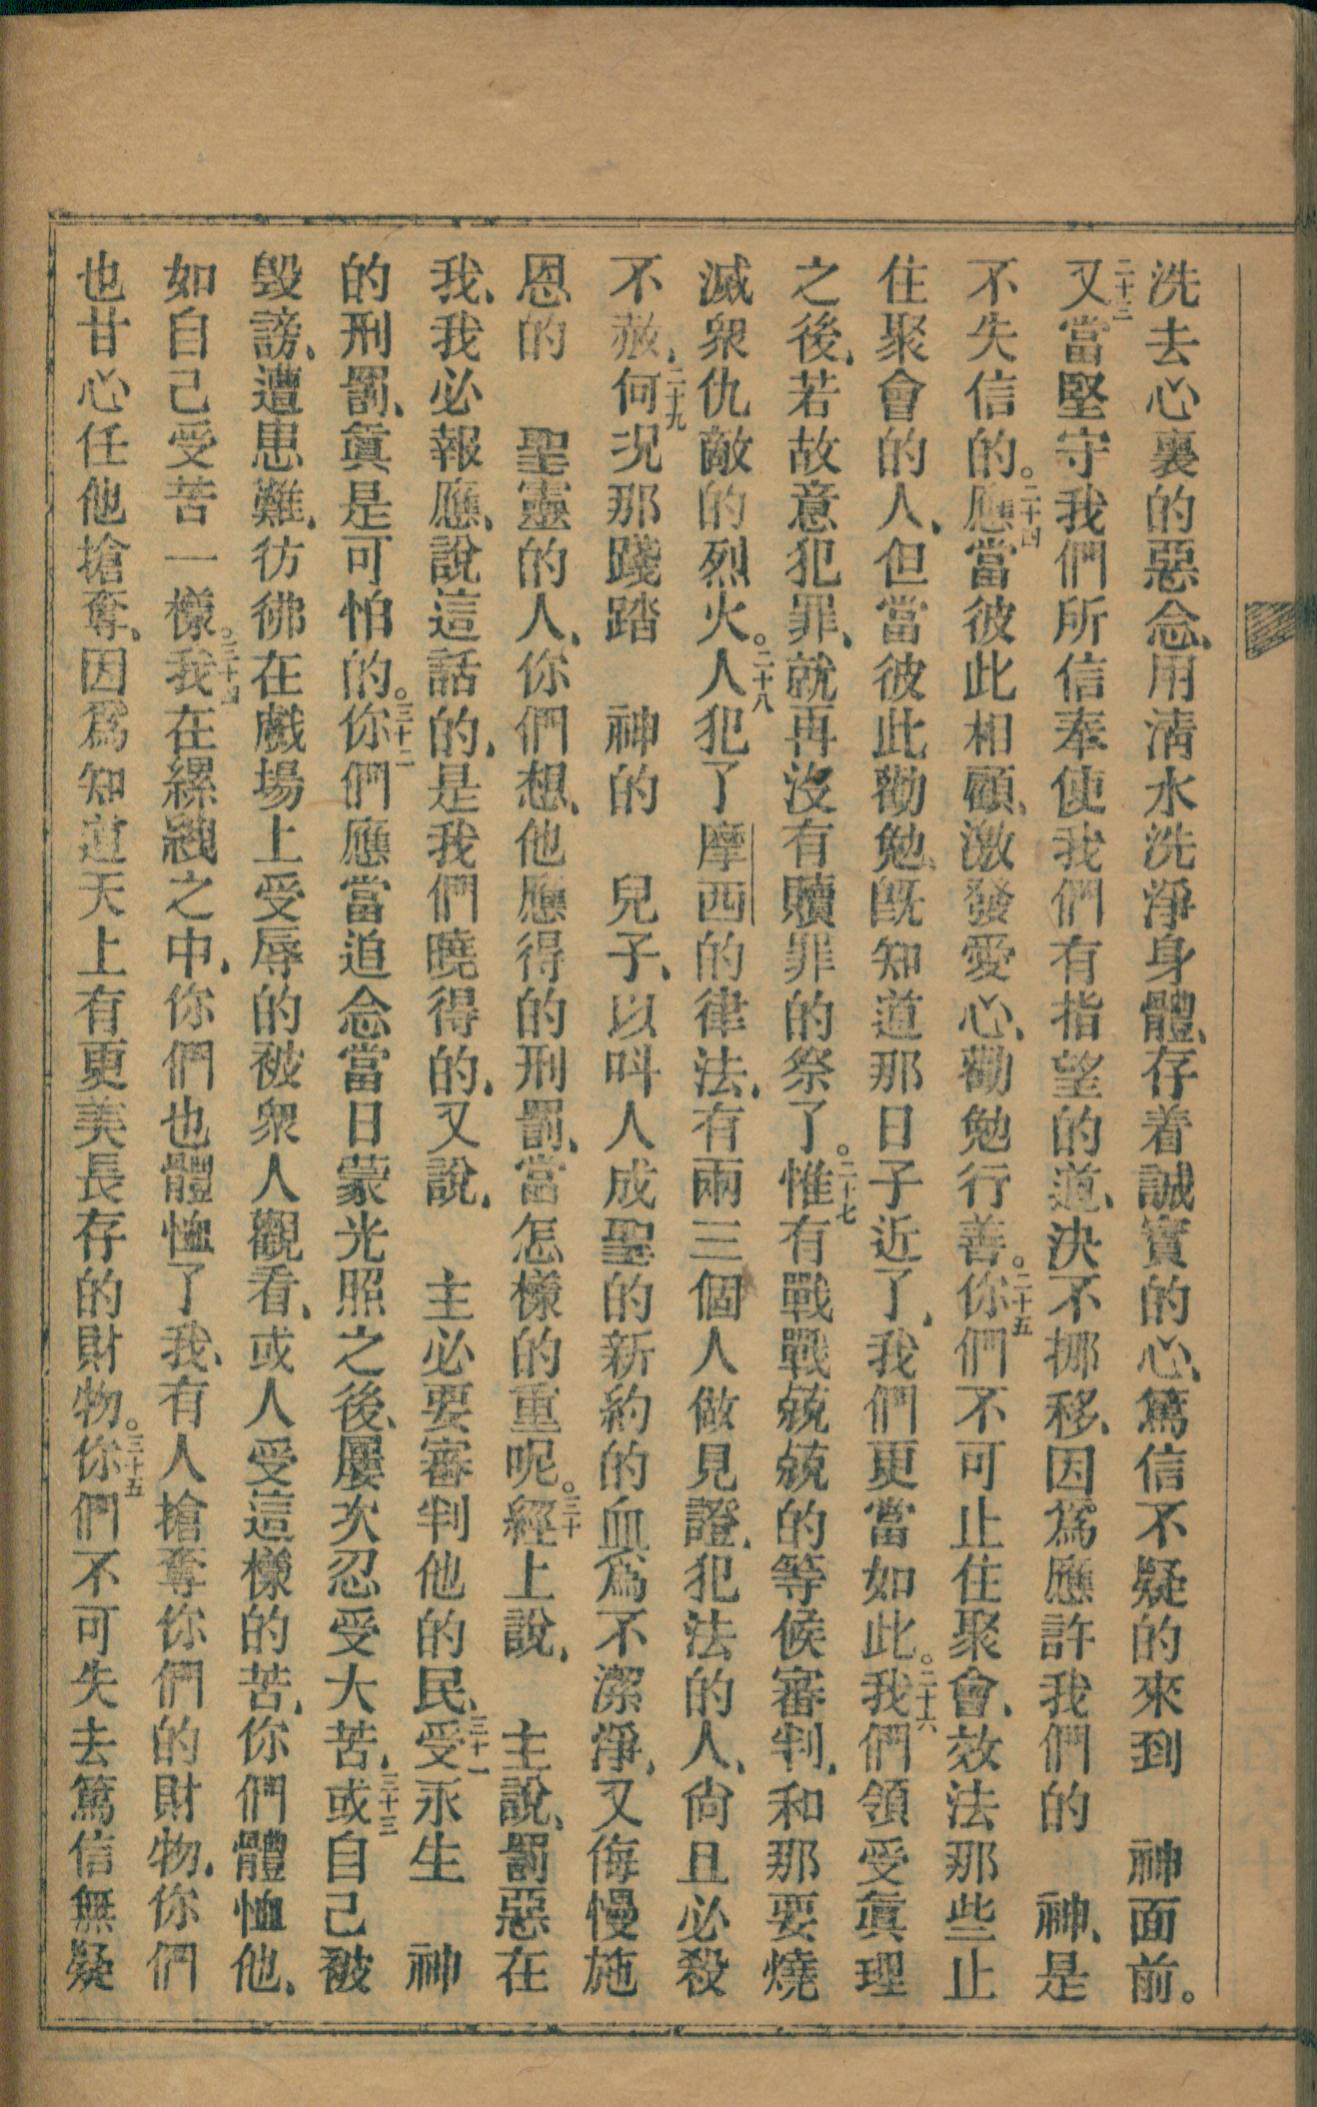 洗去心裏的惡念、用清水洗淨身體、存着誠實的心、篤信不疑的來到　神面前。
二十三又當堅守我們所信奉使我們有指望的道、決不挪移、因爲應許我們的　神、是
不失信的。二十四應當彼此相顧、激發愛心、勸勉行善。二十五你們不可止住聚會、效法那些止
住聚會的人、但當彼此勸勉、旣知道那日子近了、我們更當如此。二十六我們領受眞理
之後、若故意犯罪、就再沒有贖罪的祭了。二十七惟有戰戰兢兢的等候審判、和那要燒
滅衆仇敵的烈火。二十八人犯了摩西的律法、有兩三個人做見證、犯法的人、尙且必殺
不赦、二十九何況那踐踏　神的　兒子、以呌人成聖的新約的血爲不潔淨、又侮慢施
恩的　聖靈的人、你們想、他應得的刑罰、當怎樣的重呢。三十經上說、　主說、罰惡在
我、我必報應、說這話的、是我們曉得的、又說、　主必要審判他的民、三十一受永生　神
的刑罰、眞是可怕的。三十二你們應當追念當日蒙光照之後、屢次忍受大苦、三十三或自己被
毀謗、遭患難、彷彿在戲場上受辱的被衆人觀看、或人受這樣的苦、你們體恤他、
如自己受苦一樣。三十四我在縲絏之中、你們也體恤了我、有人搶奪你們的財物、你們
也甘心任他搶奪、因爲知道天上有更美長存的財物。三十五你們不可失去篤信無疑